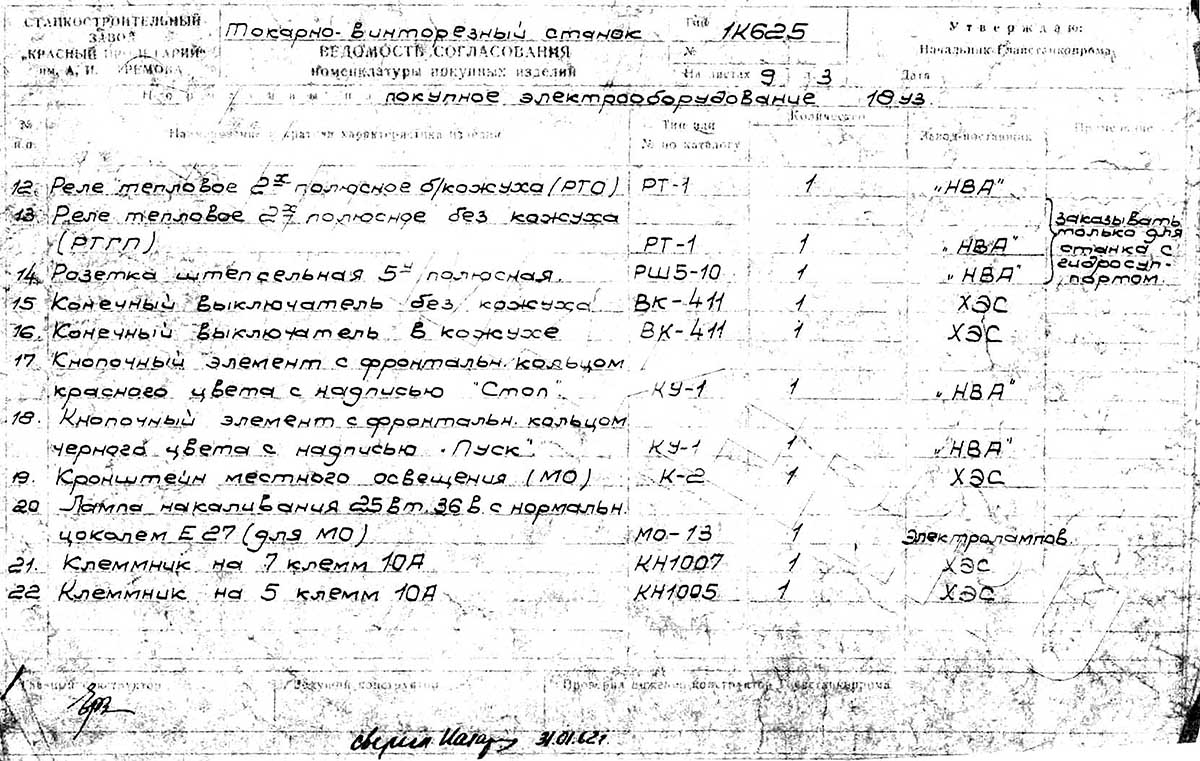 СТАНКОСТРОИТЕЛЬНЫЙ ЗАВОД
„КРАСНЫЙ
им. А. И.
Токарно-винторезный станок
ВЕДОМОСТЬ СОГЛАСОВАНИЯ
номенклатуры покупных изделий
Тип 1К625
№
На листах 9 л 3
Утверждаю:
Начальник Главстанкопрома
Дата
покупное электрооборудование 18 уз.
№ п.п.
Тип или № по каталогу
Количество
Завод-поставщик
Примечание
12. Реле тепловое 2х полюсное б/кожуха (РТО) РТ-1 1 „НВА"
13. Реле тепловое 2х полюсное без кожуха
(РТГП) РТ-1 1 „НВА"
14. Розетка штепсельная 5и полюсная. РШ5-10 1 „НВА"
заказывать
только для
станка с
гидросуп-
портом.
15 Конечный выключатель без кожуха ВК-411 1 ХЭС
16. Конечный выключатель в кожухе ВК-411 1 ХЭС
17. Кнопочный элемент с фронтальн. кольцом
красного цвета с надписью "Стоп". КУ-1 1 „НВА"
18. Кнопочный элемент с фронтальн. кольцом
черного цвета с надписью „Пуск". КУ-1 1 „НВА"
19. Кронштейн местного освещения (МО) К-2 1 ХЭС
20 Лампа накаливания 25 Вт. 36 в. с нормальн.
цоколем Е27 (для МО) МО-13 1 Электролампов.
21. Клеммник на 7 клемм 10А КН1007 1 ХЭС
22 Клеммник на 5 клемм 10А КН1005 1 ХЭС
конструктор
Ведущий конструктор
Проверил инженер-конструктор Главстанкопрома